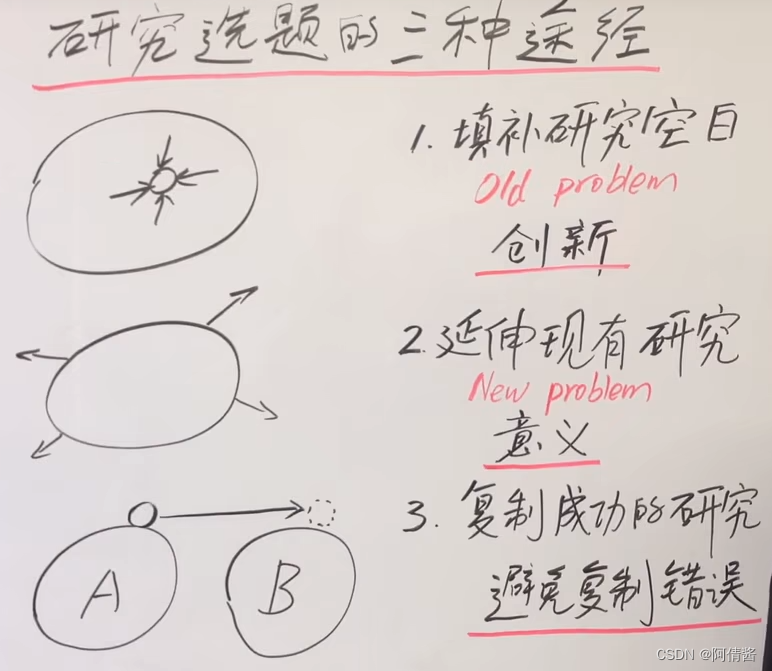 研究选题的三种途经
1. 填补研究空白
Old problem
创新
2. 延伸现有研究
New problem
意义
3. 复制成功的研究
A
B
避免复制错误
CSDN @阿倩酱